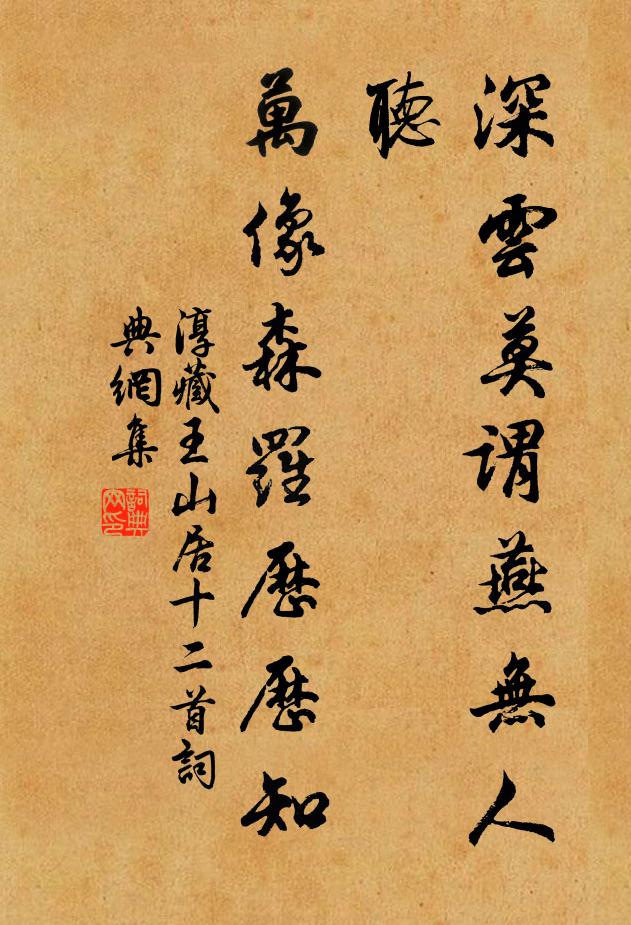 深雲莫謂燕無人
聽
萬像森羅歷歷知
淳藏王山居十二首詞
典網集
詞典
網印